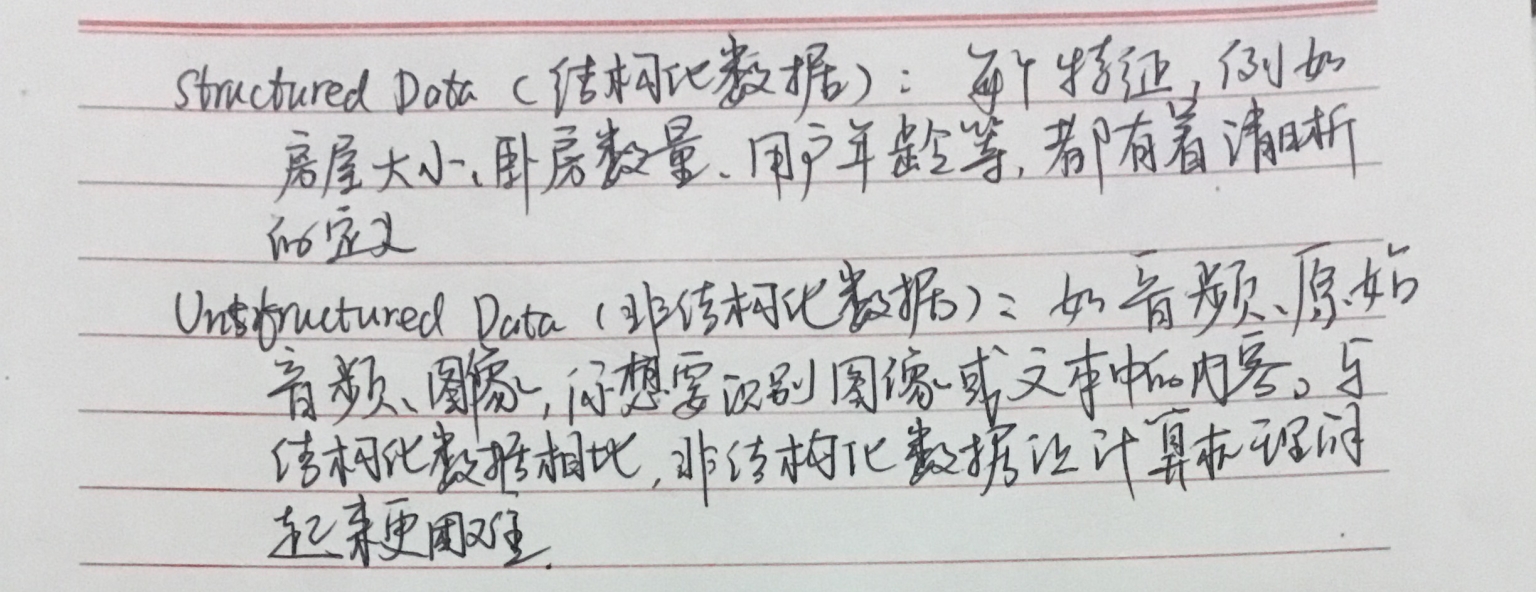 Structured Data（结构化数据）：每个特征，例如
房屋大小、卧房数量、用户年龄等，都有着清晰
的定义
Unstructured Data（非结构化数据）：如音频、原始
音频、图像，你想要识别图像或文本中的内容。与
结构化数据相比，非结构化数据让计算机理解
起来更困难.